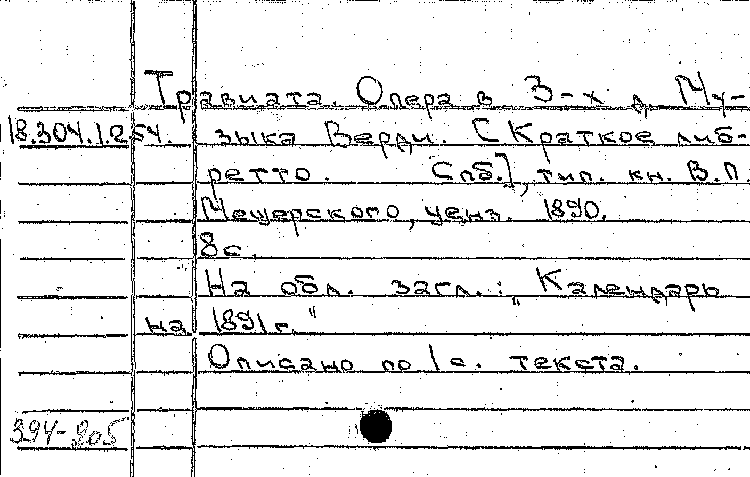 Травиата. Опера в 3-х д. Му-
18.304.1.254. зыка Верди. [Краткое либ-
ретто. Спб.], тип. кн. В.П.
Мещерского, ценз. 1890.
8 с.
На обл. загл.: "Календарь
на 1891 г."
Описано по 1 с. текста.
394-905